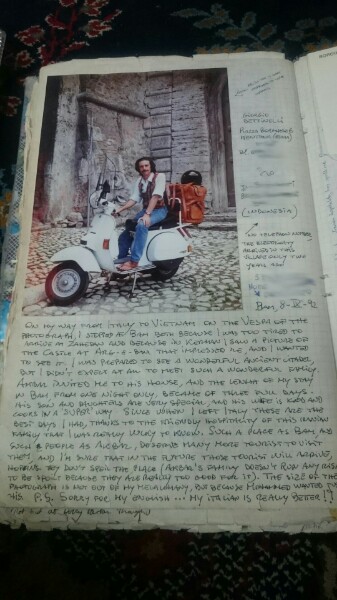 GIORGIO
BETTINELLI
(INDONESIA)
NO TELEPHONE NUMBER,
THE ELECTRICITY
ARRIVED IN THIS
VILLAGE ONLY TWO
YEARS AGO
BAM, 8-IX-92
ON MY WAY FROM ITALY TO VIETNAM ON THE VESPA OF THE
PHOTOGRAPH, I STOPPED AT BAM BOTH BECAUSE I WAS TOO TIRED TO
ARRIVE IN ZAHEDAN AND BECAUSE IN KERMAN I SAW A PICTURE OF
THE CASTLE AT ARG-E-BAM THAT IMPRESSED ME, AND I WANTED
TO SEE IT. I WAS PREPARED TO SEE A WONDERFUL ANCIENT CITADEL,
BUT I DIDN'T EXPECT AT ALL TO MEET SUCH A WONDERFUL FAMILY.
AKBAR INVITED ME TO HIS HOUSE, AND THE LENGHT OF MY STAY
IN BAM FROM ONE NIGHT ONLY, BECAME OF THREE FULL DAYS.
HIS SON AND DAUGHTERS ARE VERY SPECIAL, AND HIS WIFE IS KIND AND
COOKS IN A "SUPER" WAY. SINCE WHEN I LEFT ITALY THESE ARE THE
BEST DAYS I HAD, THANKS TO THE FRIENDLY HOSPITALITY OF THIS
FAMILY THAT I WAS REALLY LUCKY TO KNOW. SUCH A PLACE AS BAM, AND
SUCH A PEOPLE AS AKBAR, DESERVE MANY MORE TOURIST TO VISIT
THEY, AND I'M SURE THAT IN THE FUTURE THOSE TOURIST WILL ARRIVE,
HOPING THEY DON'T SPOIL THE PLACE (AKBAR'S FAMILY DOESN'T RUN ANY RISK
TO BE SPOILT BECAUSE THEY ARE REALLY TOO GOOD FOR IT). THE SIZE OF THE
PHOTOGRAPH IS NOT OUT OF MY MEGALOMANY, BUT BECAUSE MOHAMMED WANTED IT
P.S. SORRY FOR MY ENGLISH... MY ITALIAN IS REALLY BETTER!!